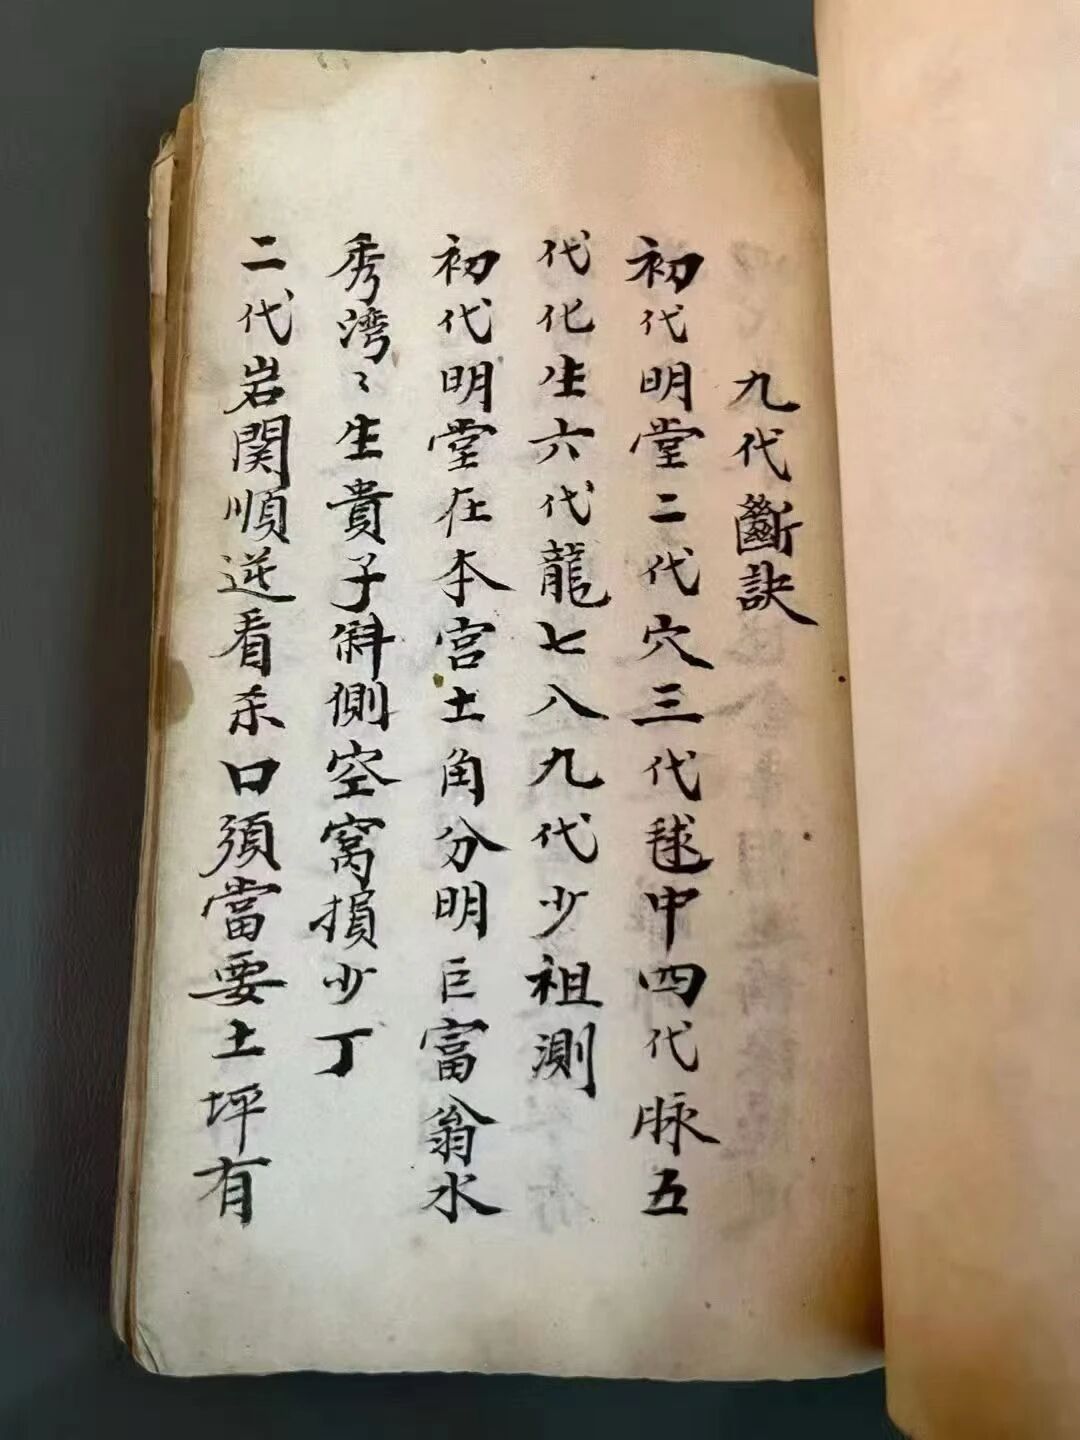 九代斷訣
初代明堂二代穴三代毬中四代脉五
代化生六代龍七八九代少祖測
初代明堂在本宫土角分明巨富翁水
秀湾〻生貴子斜側空窩損少丁
二代岩関順逆看杀口須當要土坪有